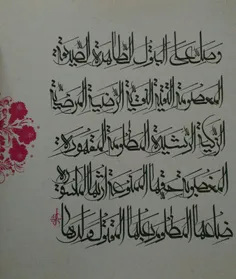 وصل علی البتول الطاهرة الصدیقة
المعصومة التقیة النقیة الرضیة المرضیة
الزکیة الرشیدة المظلومة المقهورة
المغصوبة حقها الممنوعة ارثها المکسورة
ضلعها المظلوم بعلها المقتول ولدها